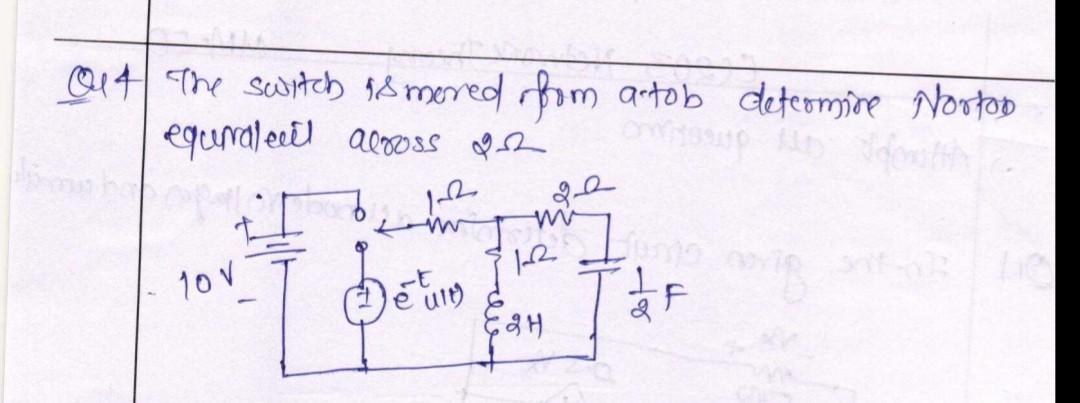 Q14 The switch is moved from a to b determine Norton
equivalent across 2Ω
1Ω 2Ω
+
10V
-
1Ω
e^-t u(t)
2H
1/2 F